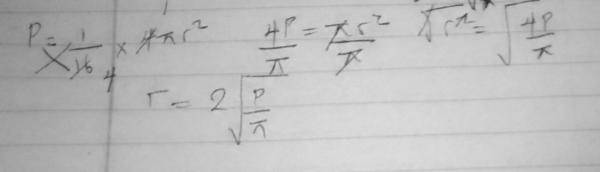 P = 1/16 4 × 4πr² 4P/π = πr²/π √r² = √4P/π
r = 2√P/π